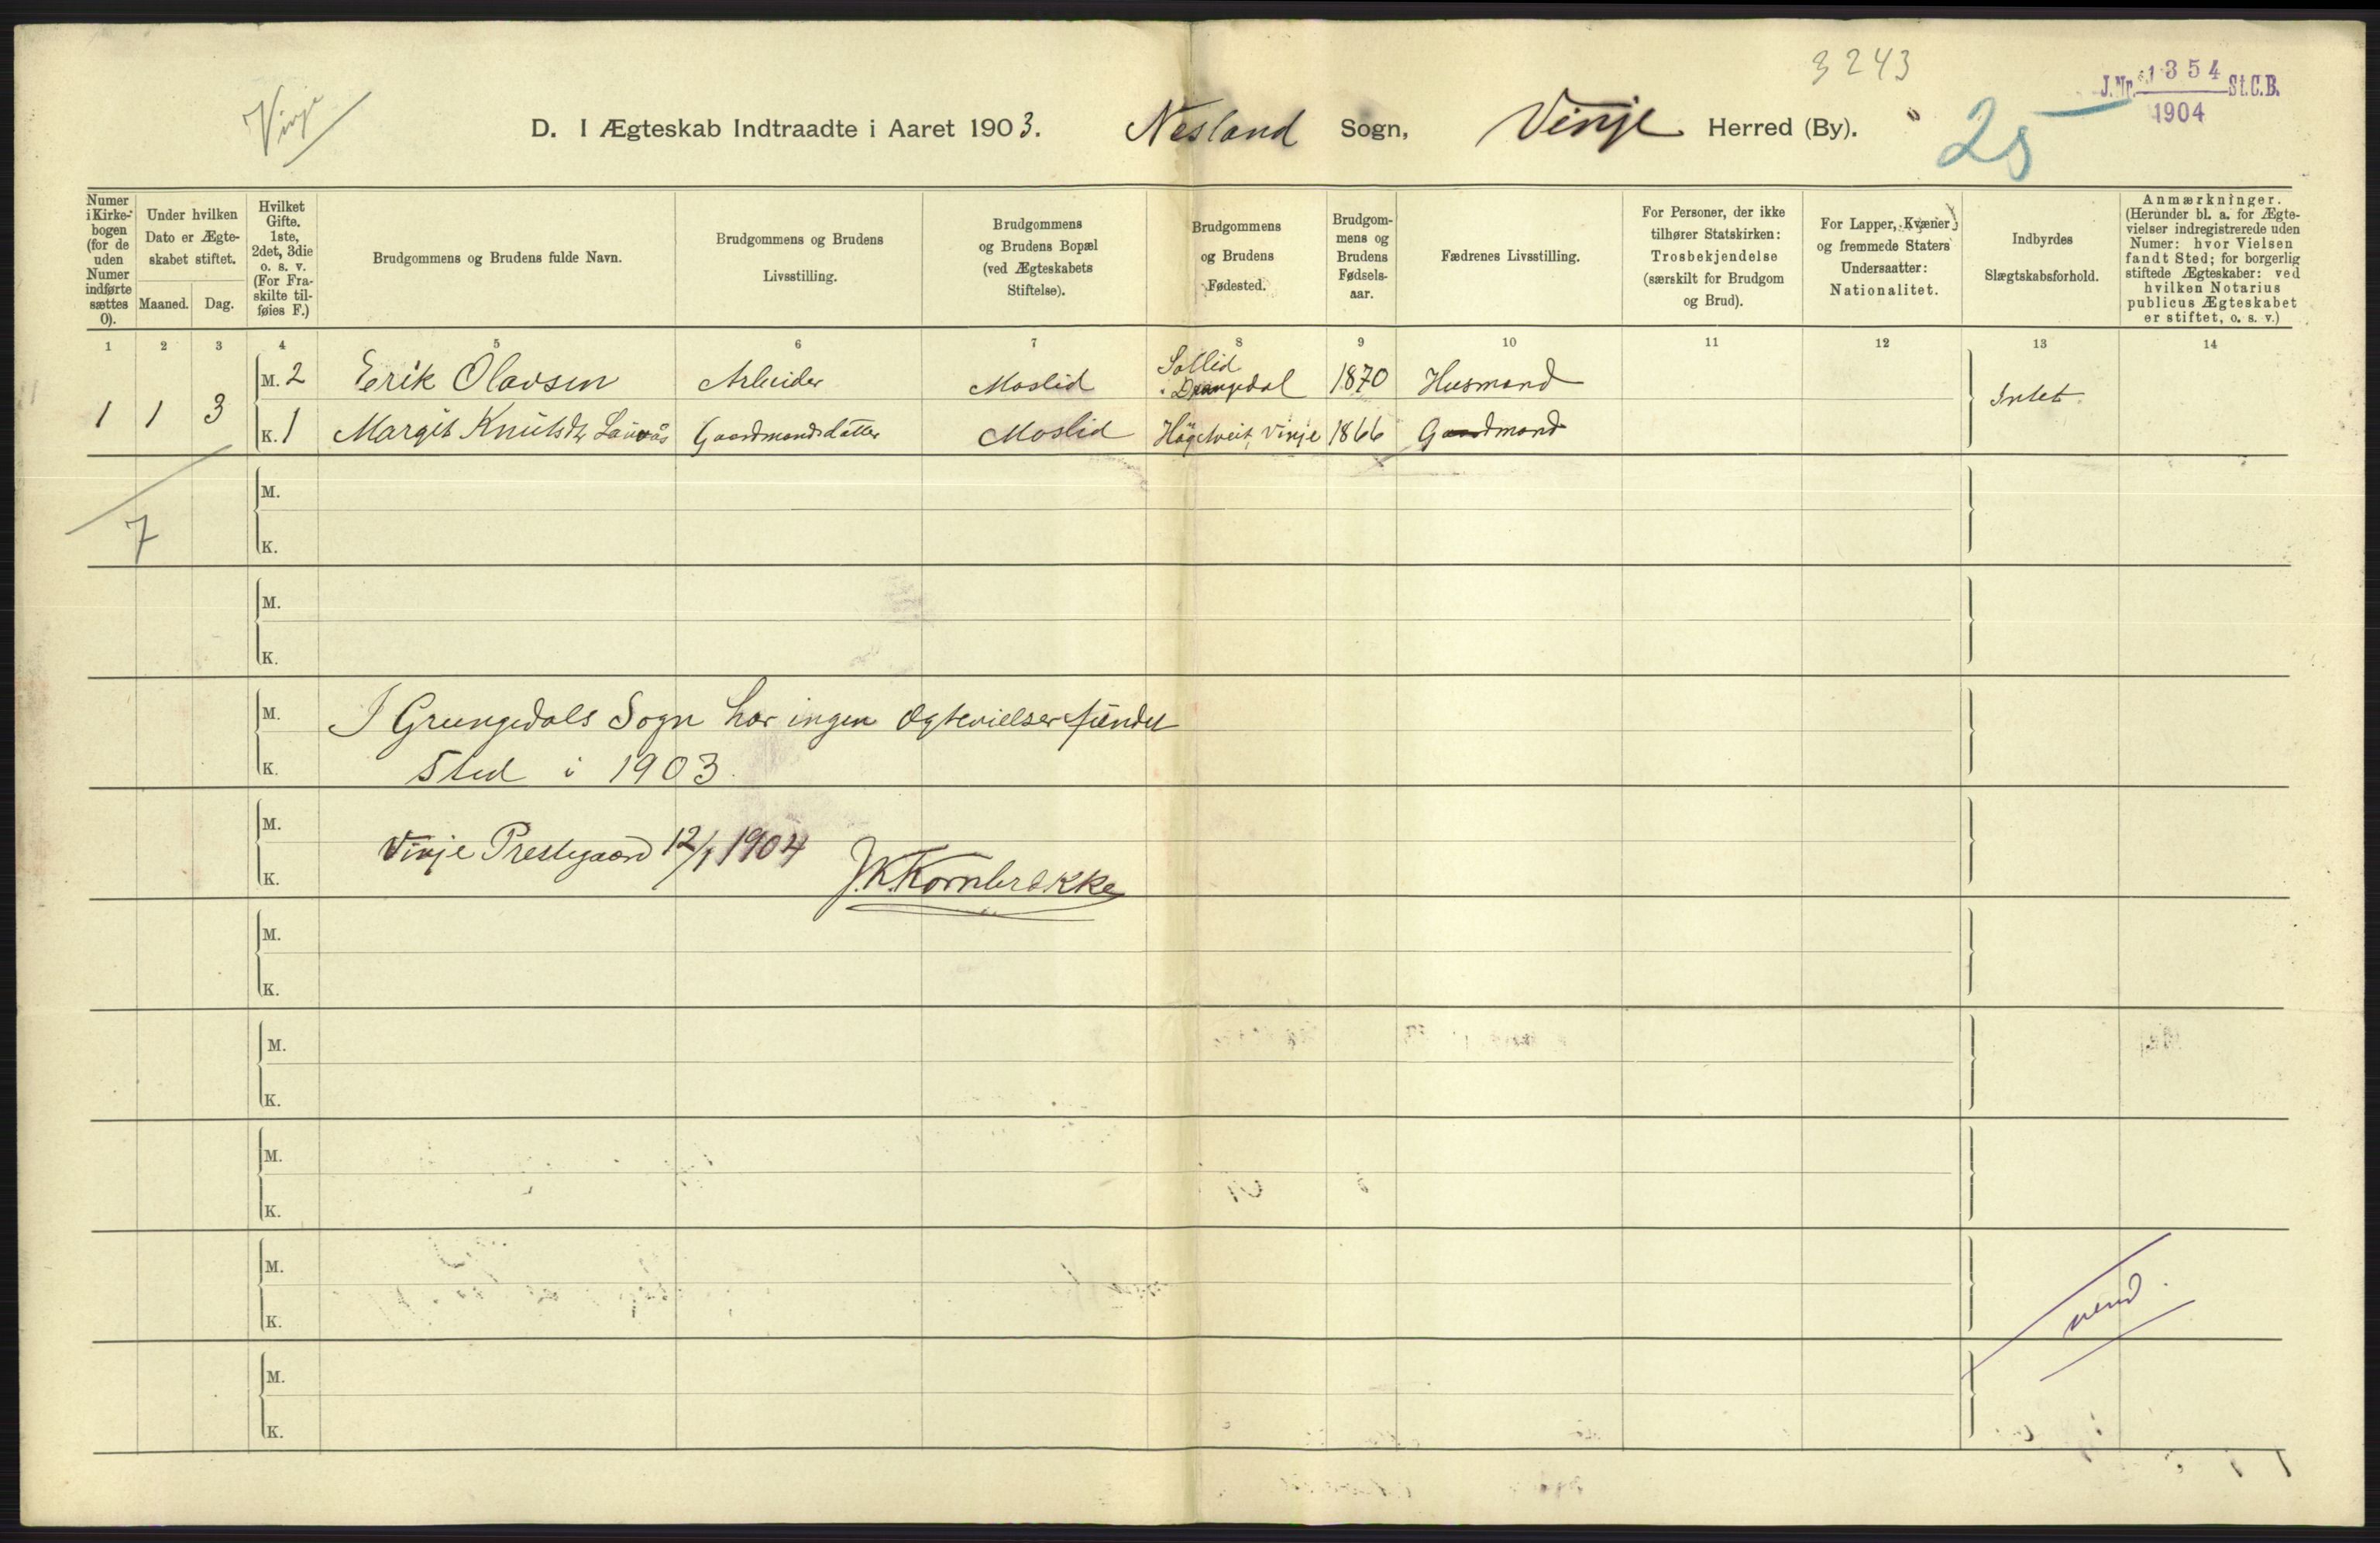 3243
J.Nr. 1354 St.C.B.
1904
Vinje
D. I Ægteskab Indtraadte i Aaret 1903. Nesland Sogn, Vinje Herred (By).
25
Numer i Kirke-bogen (for de uden Numer indførte sættes 0).
Under hvilken Dato er Ægte-skabet stiftet.
Maaned. Dag.
Hvilket Gifte. 1ste, 2det, 3die o. s. v. (For Fra-skilte til-føies F.)
Brudgommens og Brudens fulde Navn.
Brudgommens og Brudens Livsstilling.
Brudgommens og Brudens Bopæl (ved Ægteskabets Stiftelse).
Brudgommens og Brudens Fødested.
Brudgom-mens og Brudens Fødsels-aar.
Fædrenes Livsstilling.
For Personer, der ikke tilhører Statskirken: Trosbekjendelse (særskilt for Brudgom og Brud).
For Lapper, Kvæner og fremmede Staters Undersaatter: Nationalitet.
Indbyrdes Slægtskabsforhold.
Anmærkninger. (Herunder bl. a. for Ægte-vielser indregistrerede uden Numer: hvor Vielsen fandt Sted; for borgerlig stiftede Ægteskaber: ved hvilken Notarius publicus Ægteskabet er stiftet, o. s. v.)
1 2 3 4 5 6 7 8 9 10 11 12 13 14
M. 2 Erik Olavsen Arbeider Moslid Sollid i Drangedal 1870 Husmand
1 1 3 Intet.
K. 1 Margit Knutsdtr Lauvås Gaardmandsdatter Moslid Högetveit, Vinje 1866 Gaardmand
M.
7
K.
M.
K.
M. I Grungedals Sogn har ingen Ægtevielser fundet
K. Sted i 1903.
M.
Vinje Prestegaard 12/1 1904
K. J.K. Kornbrekke
M.
K.
M.
K.
M.
K.
M.
K.
M.
K.